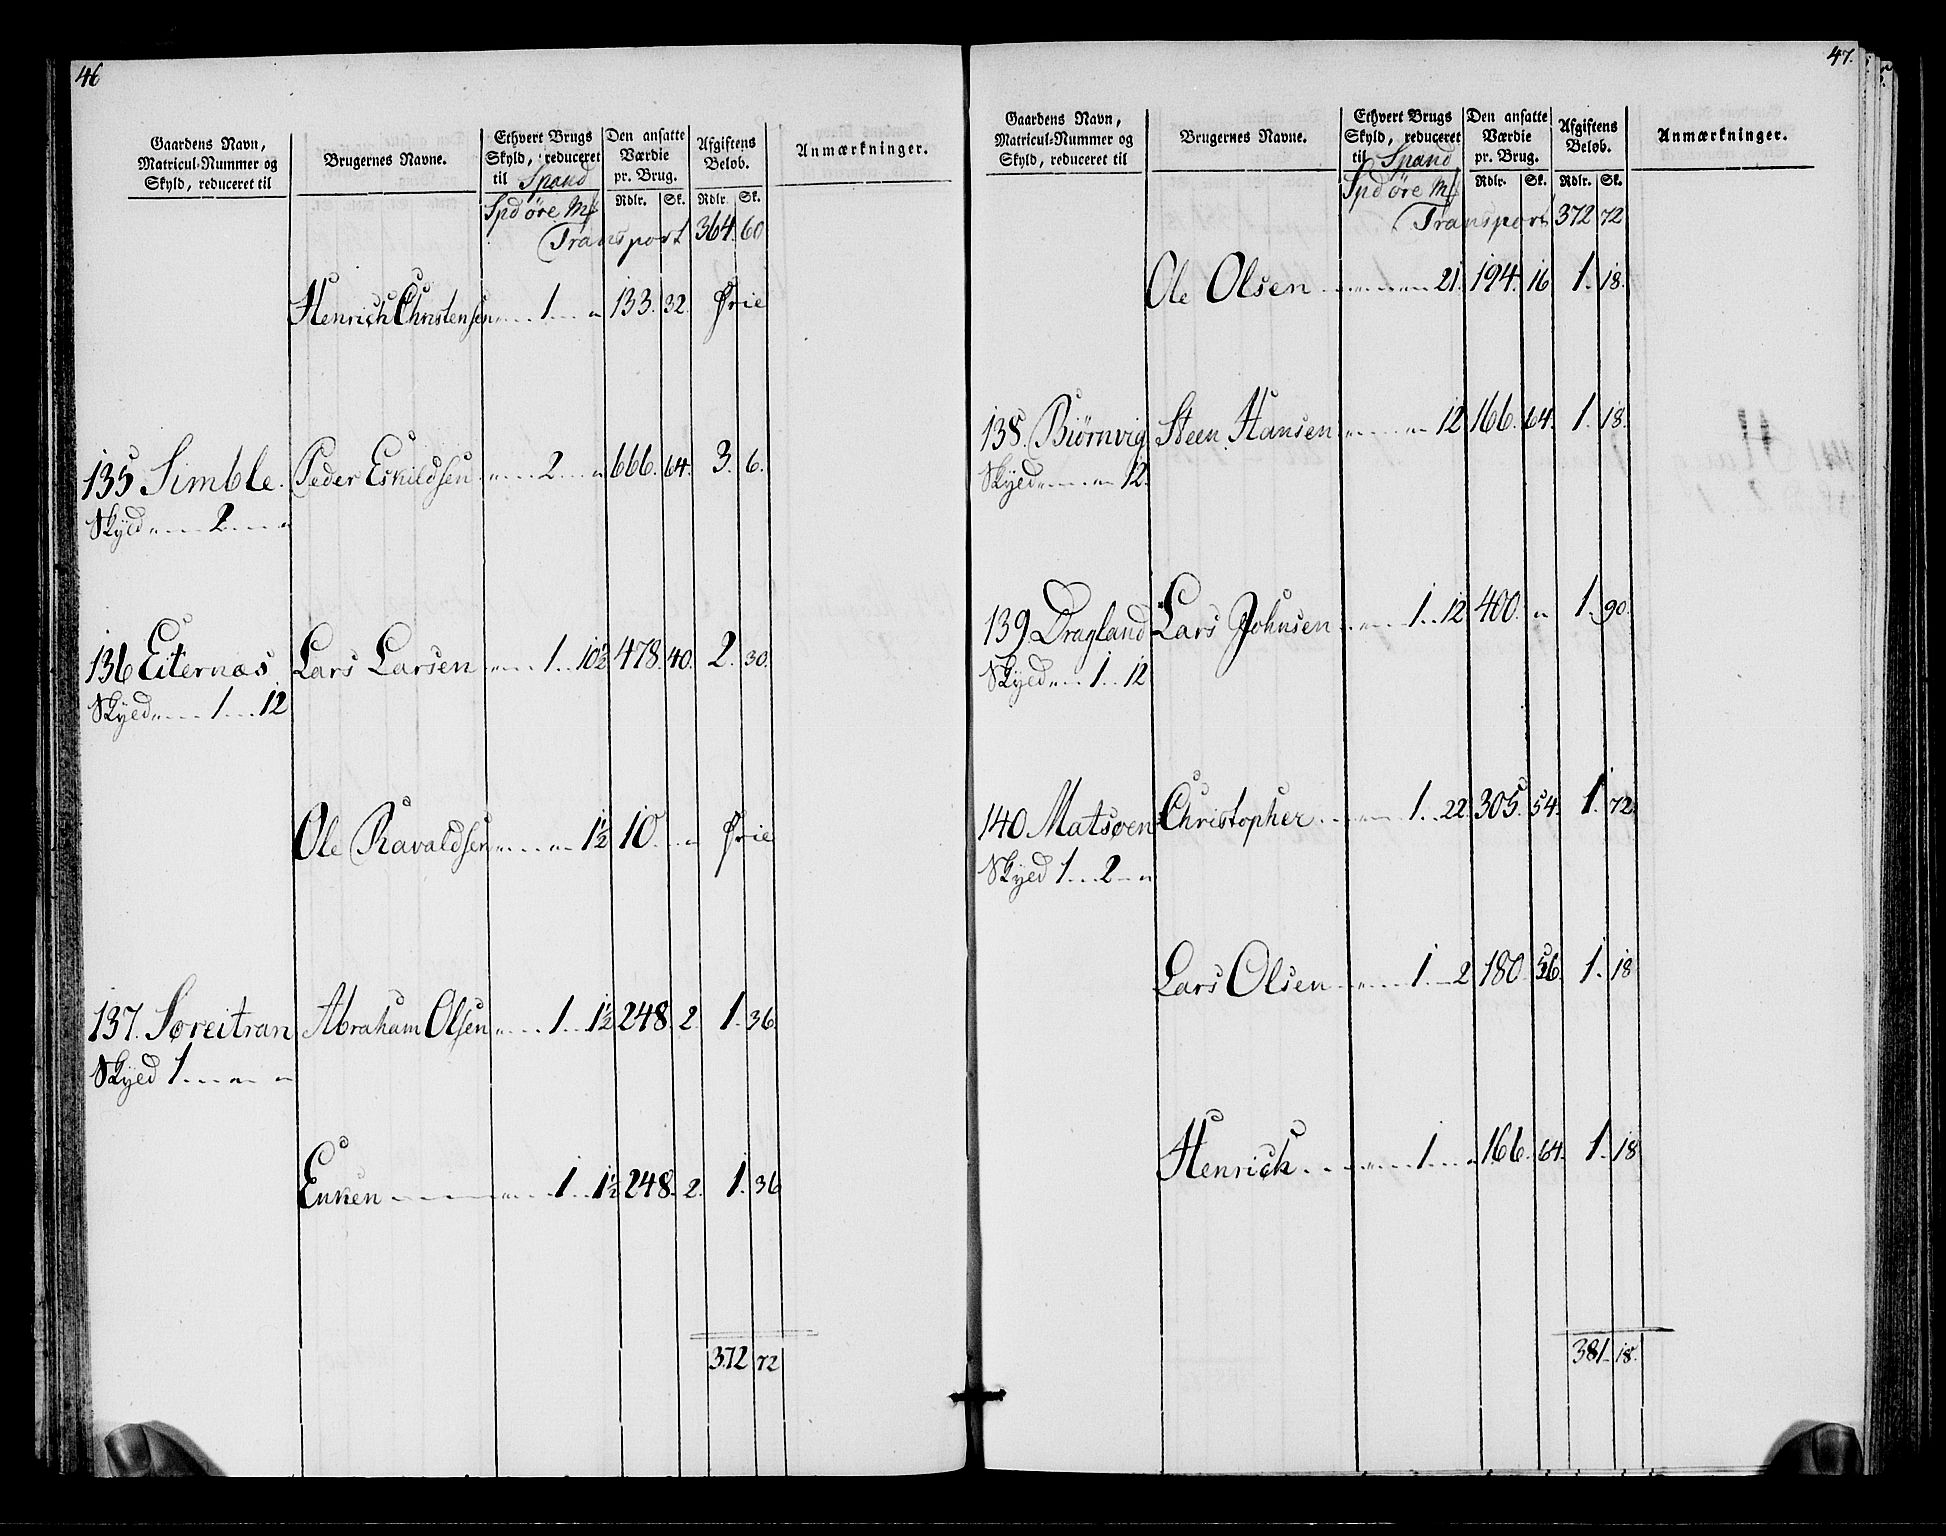 46
Gaardens Navn, Matricul-Nummer og Skyld, reduceret til
Brugernes Navne.
Ethvert Brugs Skyld, reduceret til Spand
Den ansatte Værdie pr. Brug.
Afgiftens Beløb.
Anmærkninger.
Spd öre Mk Rdlr. Sk. Rdlr. Sk.
Transport 364. 60
Henrich Christensen 1 " 133. 32. Frie
135 Simble. Peder Eskildsen 2 " 666. 64. 3. 6.
Skyld 2 "
136 Eiternæs Lars Larsen 1 10½ 478. 40. 2. 30.
Skyld 1 12
Ole Ravaldsen 1½ 10. " Frie
137. Søreitran Abraham Olsen 1 1½ 248. 2. 1. 36.
Skyld 1 " "
Enken 1 1½ 248. 2. 1. 36
372 72
47.
Gaardens Navn, Matricul-Nummer og Skyld, reduceret til
Brugernes Navne.
Ethvert Brugs Skyld, reduceret til Spand
Den ansatte Værdie pr. Brug.
Afgiftens Beløb.
Anmærkninger.
Spd öre Mk Rdlr. Sk. Rdlr. Sk.
Transport 372 72
Ole Olsen " 21. 194. 16 1. 18.
138. Biørnvig Steen Hansen " 12 166. 64. 1. 18.
Skyld " 12.
139 Dragland Lars Johnsen 1 12 400. " 1. 90.
Skyld 1 12
140 Matsøen Christopher 1 22. 305. 54. 1. 72.
Skyld 1 2 "
Lars Olsen 1 2 180. 56. 1. 18
Henrich 1 " 166. 64. 1. 18
381. 18.